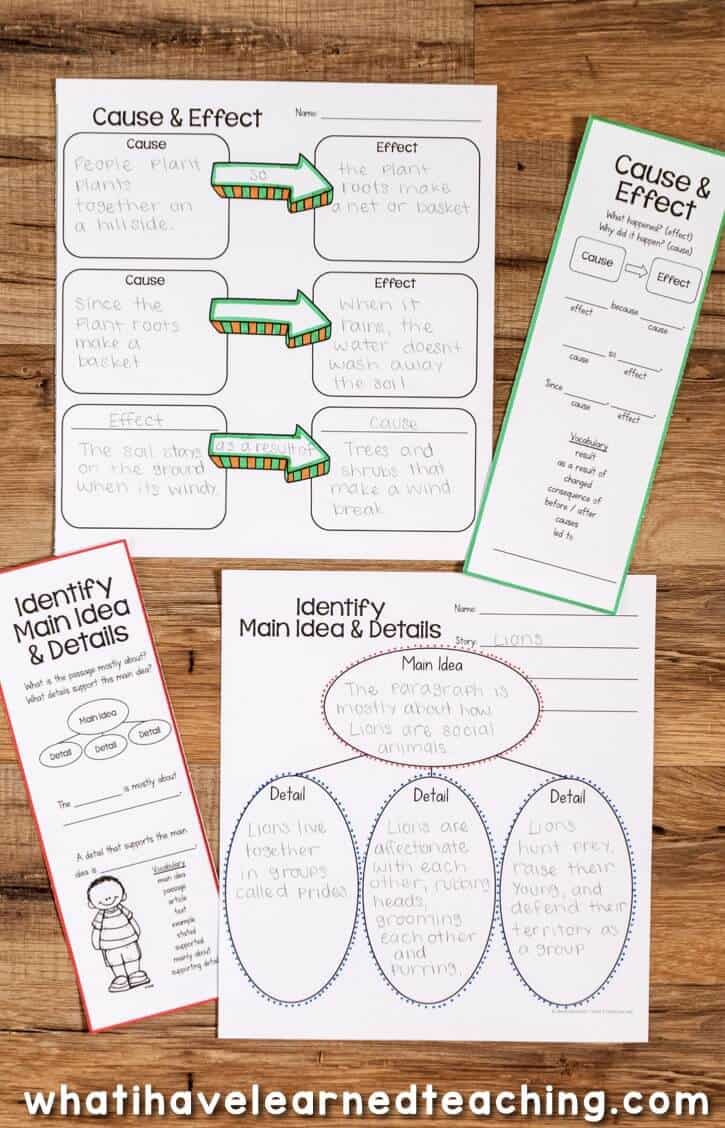 Cause & Effect
Name:
Cause
People Plant
Plants
together on
a hillside.
so
Effect
the Plant
roots make
a net or basket
Cause
Since the
Plant roots
make a
basket
Effect
When it
rains, the
water doesnt
wash away
the soil
Effect
The soil stays
on the ground
when its windy.
as a result of
Cause
Trees and
shrubs that
make a wind
break
Cause &
Effect
What happened? (effect)
Why did it happen? (cause)
Cause
Effect
because
effect
cause
so
cause
effect
Since
cause
effect
Vocabulary
result
as a result of
changed
consequence of
before / after
causes
led to
Identify
Main Idea
& Details
What is the passage mostly about?
What details support this main idea?
Main Idea
Detail
Detail
Detail
The is mostly about
A detail that supports the main
idea is
Vocabulary
main idea
passage
article
text
example
stated
supported
mainly about
supporting detail
Identify
Main Idea & Details
Name:
Story: Lions
Main Idea
The Paragraph is
mostly about how
Lions are social
animals
Detail
Lions live
together
in groups
called prides
Detail
Lions are
affectionate
with each
other, rubbing
heads,
grooming
each other
and
purring.
Detail
Lions
hunt prey,
raise their
young, and
defend their
territory as
a group
whatihavelearnedteaching.com